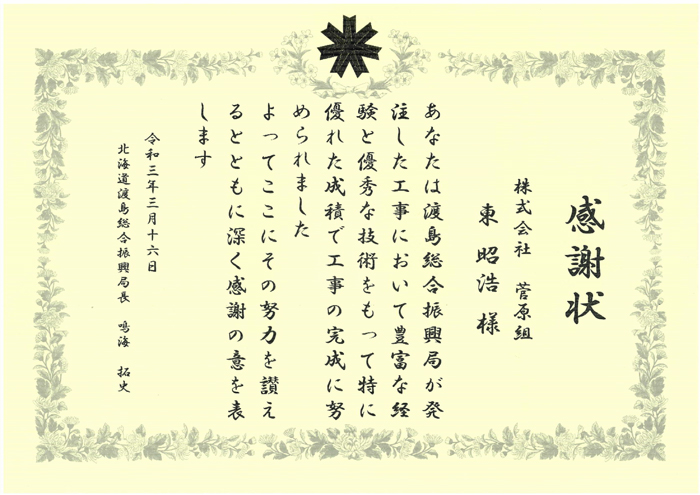 感謝状
株式会社 菅原組
東 昭浩 様
あなたは渡島総合振興局が発
注した工事において豊富な経
験と優秀な技術をもって特に
優れた成績で工事の完成に努
められました
よってここにその努力を讃え
るとともに深く感謝の意を表
します
令和三年三月十六日
北海道渡島総合振興局長 鳴海 拓史